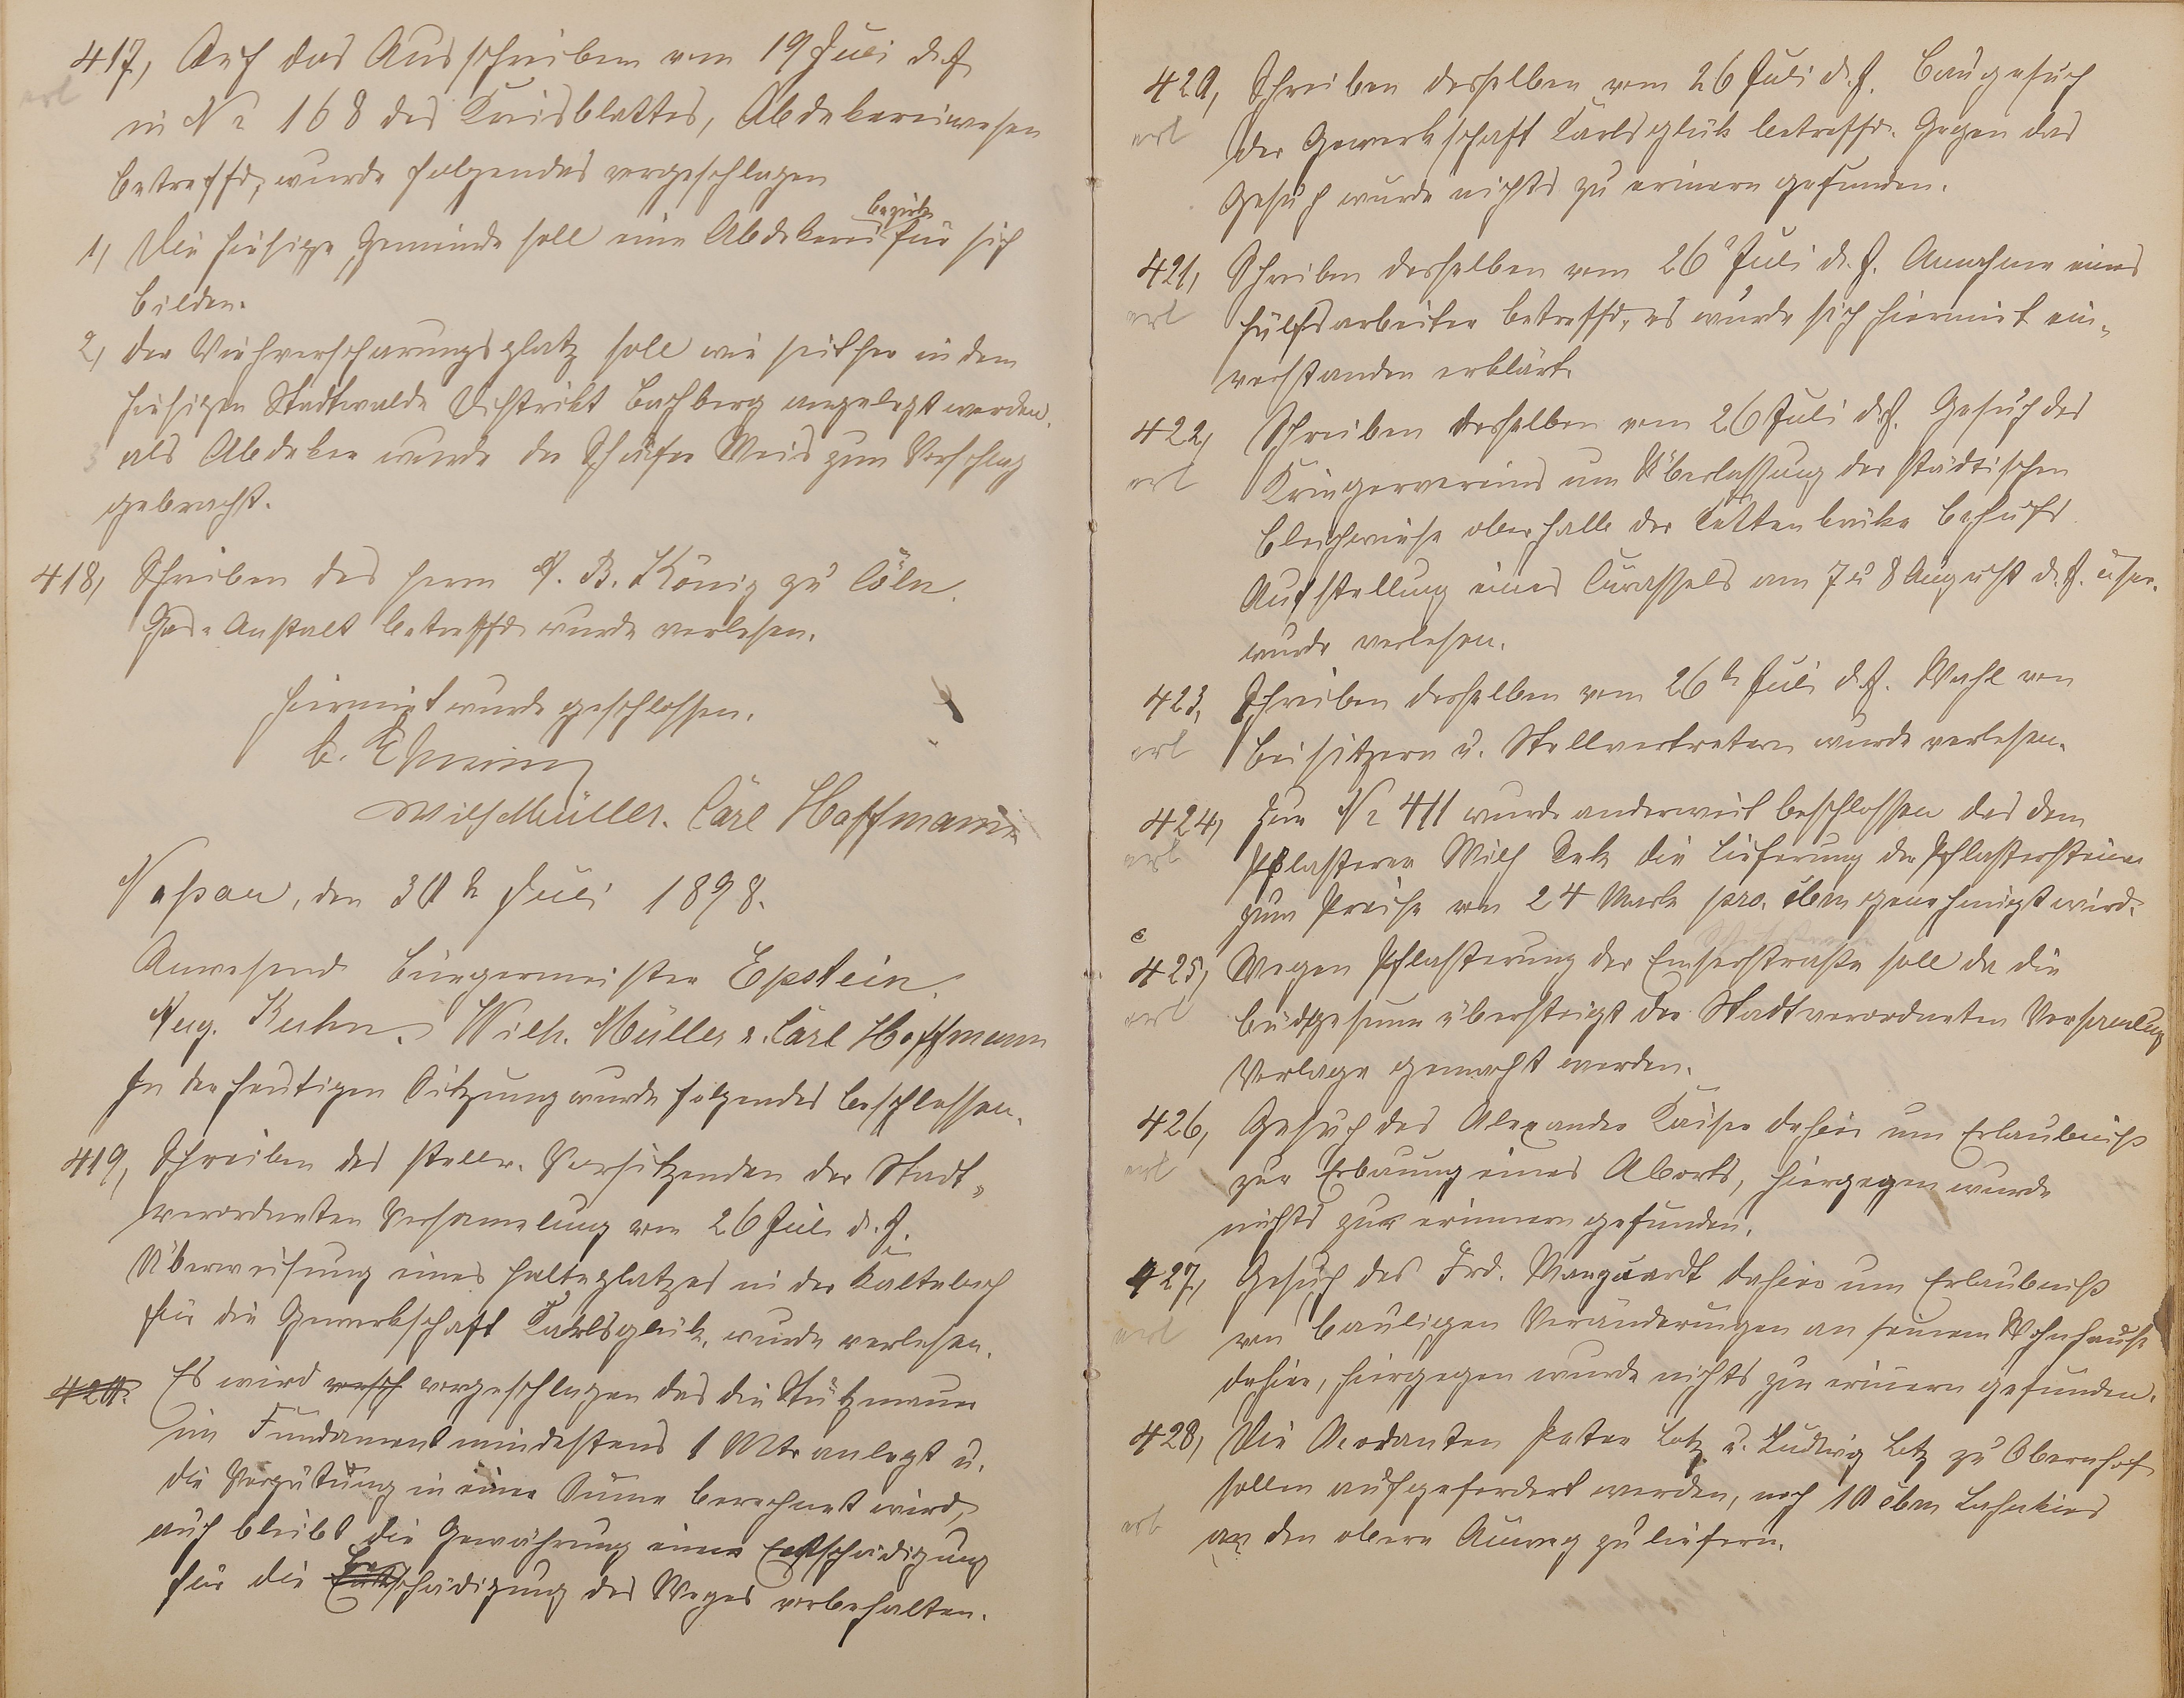 417, Auf das Ausschreiben vom 19 Juli d. J.
erl
in No 168 des Kreisblattes, Abdekereiwesen
betreffd, wurde folgendes vorgeschlagen
1, Die hiesige Gemeinde soll eine Abdekerei bezirk für sich
bilden.
2, der Viehverscharungsplatz soll wie seither in dem
hiesigen Stadtwalde Distrikt Bachberg angelegt werden.
3 als Abdeker wurde der Schäfer Weis zum Vorschlag
gebracht.
418, Schreiben des Herrn A. B. König zu Cöln.
Gas-Anstalt betreffd wurde verlesen.
Hiermit wurde geschlossen.
Wilh Müller. Carl Hoffmann
Nassau, den 30 ten Juli 1898.
Anwesend Bürgermeister Epstein.
Aug. Kuhn. Wilh. Müller u. Carl Hoffmann
In der heutigen Sitzung wurde folgendes beschlossen.
419, Schreiben des stellv. Vorsitzenden der Stadt-
verordneten Versamelung vom 26 Juli d. J.
Überweisung eines Halteplatzes in der Kaltebach
für die Gewerkschaft Carlsglük, wurde verlesen.
420. Es wird versch vorgeschlagen das die Stützmauer
im Fundament mindestens 1 Mtr anlegt u.
die Vergütung in einer Sume berechnet wird,
auch bleibt die Gewährung einer Entschädigung
für die Ent Beschädigung des Weges vorbehalten.
420, Schreiben desselben vom 26 Juli d. J. Baugesuch
erl
der Gewerkschaft Carlsglük betreffd. Gegen das
Gesuch wurde nichts zu erinern gefunden.
421, Schreiben desselben vom 26 Juli d. J. Annahme eines
erl
Hülfsarbeiter betreffd, es wurde sich hiermit ein-
verstanden erklärt.
422, Schreiben desselben vom 26 Juli d. J. Gesuch des
erl
Kriegervereins um Überlassung der städtischen
Bleichwiese oberhalb der Kettenbrüke behufs
Aufstellung eines Carussels am 7 u 8 August d. J.
wurde verlesen.
423, Schreiben desselben vom 26 ten Juli d. J. Wahl von
erl
Beisitzern u. Stellvertretern wurde verlesen.
424, Zur No 411 wurde anderweit beschlossen das dem
erl
Pflasterer Wilh die Lieferung der Pflastersteine
zum Preise von 24 Mark pro. cbm genehmigt wird.
425, Wegen Pflasterung der Emserstraße soll da die
erl
Büdgesume übersteigt der Stadtverordneten Versamlung
Vorlage gemacht werden.
426, Gesuch des Alexander Kaiser dahier um Erlaubniß
erl
zur Erbauung eines Aborts, hiergegen wurde
nichts zur erinnern gefunden.
427, Gesuch des Frd. Marquardt dahier um Erlaubniß
erl
von bauligen Veränderungen an seinem Wohnhause
dahier, hiergegen wurde nichts zu erinern gefunden.
428, Die Peter Lotz u. Ludwig Lotz zu Obernhof
sollen aufgefordert werden, noch 10 cbm Lahnkies
erl
an den obern Auweg zu liefern.